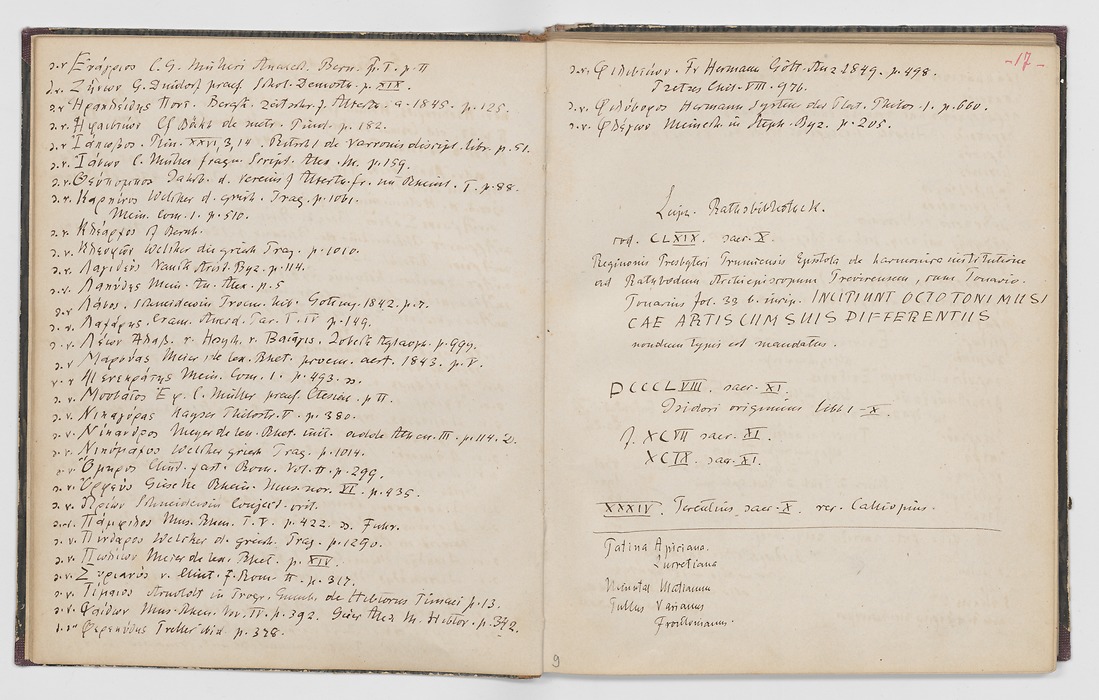 s.v. Εὐάγριος C. G. Mülleri Anaect. Bern. p. I. p. II
s.v. Ζήνων G. Dindorf praef. Schol. Demosth. p. XIX.
s.v. Ἡρακλείδης Ποντ. Bergk. Zeitschr. f. Alterth. a. 1845. p. 125.
s.v. Ἡφαιστίων Cf Böckh de metr. Pind. p. 182.
s.v. Plin. XXVI, 3, 14. Ritschl de Varronis discipl. libr. p. 51.
s.v. C. Müller fragm. Script. Alex. M. p. 159.
s.v. Θεόπομπος Jahrb. d. Vereins f Alterth. fr. im Rheinl. I. p. 88.
s.v. Καρκίνος Welcker d. griech. Trag. p. 1061.
Mein. Com. 1. p. 510.
s.v. Κλέαρχος
s.v. Κλεοφῶν Welcker die griech Trag. p. 1010.
s.v. Nauck Arist. Byz. p. 114.
s.v. Mein. An. Alex. p. 5
s.v. Λάσος. Schneidewin Prooem. hib. Gotting. 1842. p. 7.
s.v. Λαχάρης. Cram. Anecd. Par. T. IV p. 149.
s.v. Lobeck Aglaoph. p. 999.
s.v. Meier, de lex. Rhet. prooem. aest. 1843. p. V.
s.v. Mein. Com. 1. p. 493.
s.v. C. Müller praef. Ctesiae. p. II.
s.v. Νικαγόρας Kayser Philostr. V. p. 380.
s.v. Νίκανδρος Meyer de lex. Rhet. init. adde Athen. III. p. 114. D.
s.v. Νικόμαχος Welcker griech Trag. p. 1014.
s.v. Ὅμηρος Clint. fast. Rom. Vol. II. p. 299.
s.v. Ὀρφεύς Giseke Rhein. Mus. nov. VI. p. 435.
s.v. Schneidewin Conject. crit.
s.v. Πάμφιλος Mus. Rhen. T. V. p. 422.
s.v. Πίνδαρος Welcker d. griech. Trag. p. 1290.
s.v. Πωλίων Meier de lex. Rhet. p. XIV.
s.v. Συριανός v. Clint. f. Rom. II. p. 317.
s.v. Τίμαιος Arnoldt in Progr. Gumb. de Historia Timaei p. 13.
s.v. Φαίδων Mus. Rhen. nov. II. p. 392. Geier Alex M. Histor. p. 342.
s.v. Φερεκύδης Preller ibid. p. 378.
9
-17-
s.v. Φιλιστίων. Fr Hermann Gött. Anz 1849. p. 498.
Tzetzes Chil. VIII. 976.
s.v. Φιλόβορος Hermann System der Plat. Philos. 1. p. 660.
s.v. Φλέγων Meineck. in Steph. Byz. p. 205.
Leipz. Rathsbibliothek.
cod. CLXIX. saec. X.
Reginonis Presbyteri Prumiensis Epistola de harmonica institutione
ad Rathbodum Archiepiscopum Trevirensem, cum Tonario.
Tonarius fol. 33 b. incip. INCIPIUNT OCTO TONI MUSI
CAE ARTIS CUM SUIS DIFFERENTIIS
nondum typis est mandatus.
DCCCLVIII. saec. XI.
Isidori originum libb 1-X.
f. XCVII saec. XI.
XCIX. saec. XI.
XXXIV. Terentius saec. X. rec. Calliopius.
Patina Apiciana.
Lucretiana
Minutal Matianum
Pullus Varianus
Frontonianus.